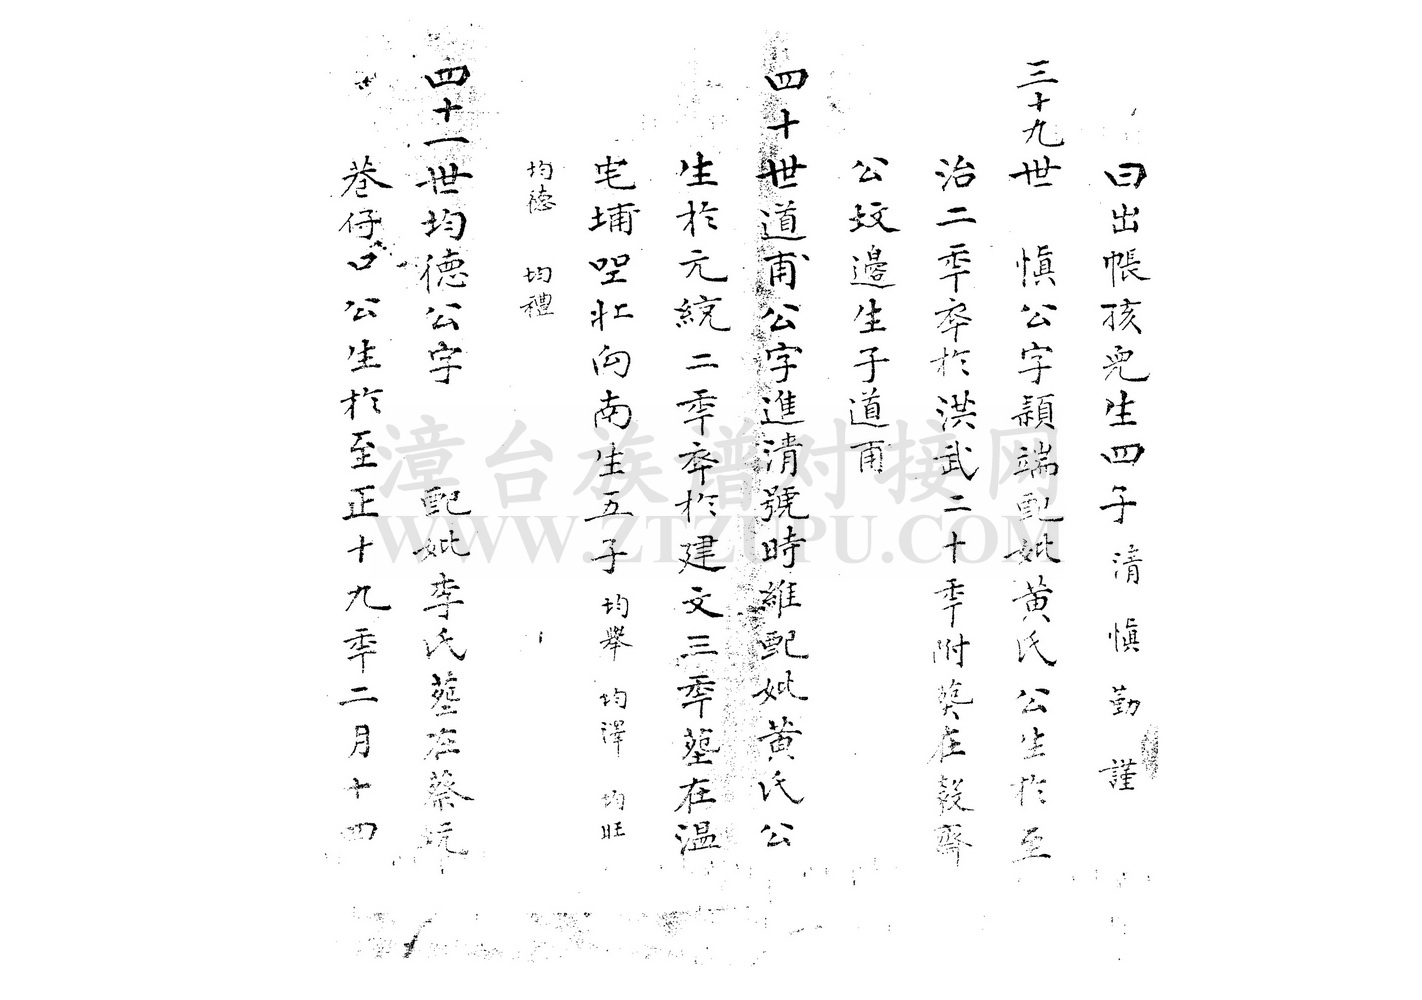 曰出帳孩兒生四子清慎勤謹
三十九世 慎公字頴端配妣黄氏公生於至
治二秊卒於洪武二十秊附葬在毅齋
公坟邉生子道甫
四十世道甫公字進清號時維配妣黄氏公
生於元統二秊卒於建文三秊墓在温
宅埔坐壯向南生五子均舉 均澤 均旺
均德 均禮
四十一世均德公字 配妣李氏墓在蔡坑
巷仔口公生於至正十九秊二月十四
漳台族谱对接网
WWW.ZTZUPU.COM